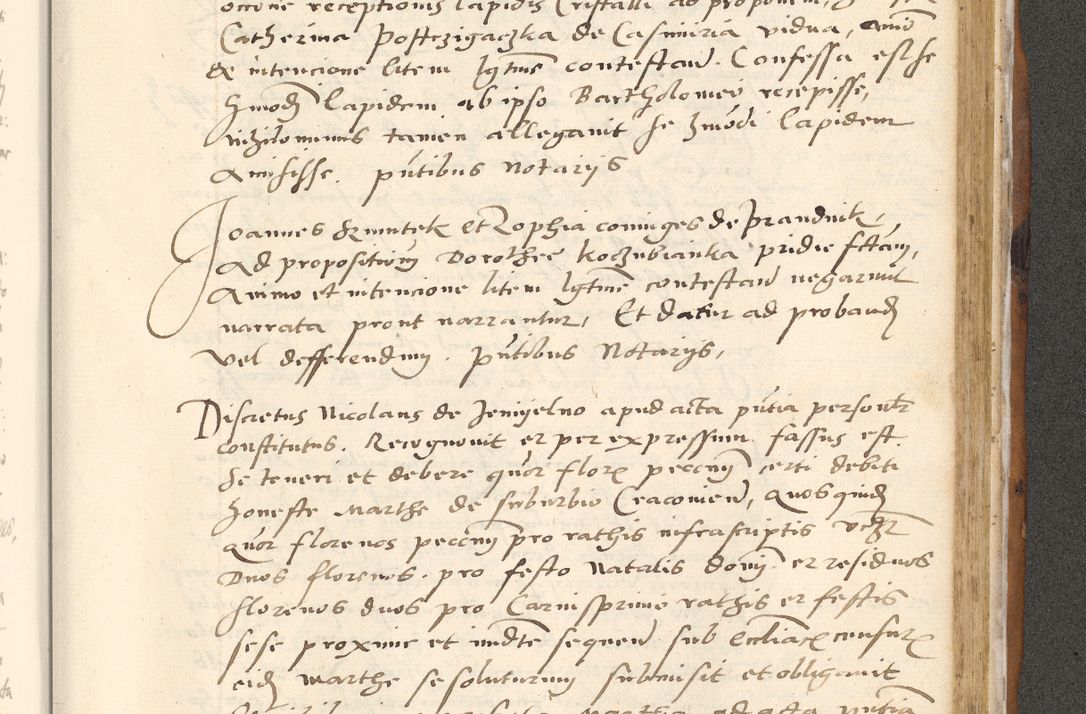 Catherina Postrzigaczka de Casimiria vidua, animo
et intencione litem lgtme contestand. Confessa est se
hmodj lapidem ab ipso Bartholomeo recepisse,
nihilominus tamen allegavit se hmodi lapidem
amisisse. pntibus Notarijs
Joannes et Zophia coniuges de prandnik,
Ad propositum Dorothee koczubianka pridie fctam,
Animo et intencione litem lgtme contestand negarunt
narrata prout narrantur, Et datur ad proband
vel defferendum. pntibus Notarijs,
Discretus Nicolaus de apud acta pntia personlr
constitutus. Recognovit et per expressum fassus est.
Se teneri et debere quor flor peccnij certi debiti
honeste Marthe de suburbio Cracovien, quos quidj
quor florenos peccnij pro rathis infrascriptis vczr
Duos florenos. pro festo Natalis domj. et residuos
florenos duos pro Carnisprivio rathis et festis
sese proxime et imdte sequen sub Eccliac censur
eidj Marthe se soluturum submisit et obligavit